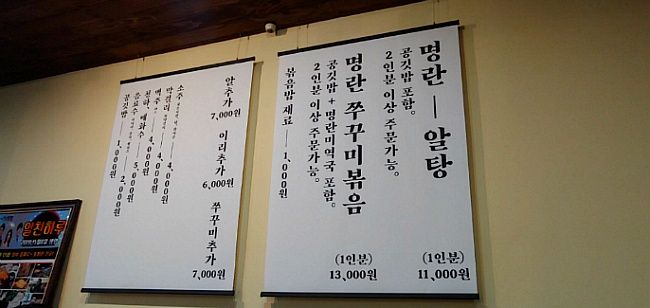 명란 — 알탕 (1인분) 11,000원
공깃밥 포함.
2인분 이상 주문가능.
명란 쭈꾸미볶음 (1인분) 13,000원
공깃밥 + 명란미역국 포함.
2인분 이상 주문가능.
볶음밥 재료 — 1,000원
알추가 7,000원
이리추가 6,000원
쭈꾸미추가 7,000원
소주 4,000원
막걸리 4,000원
맥주 4,000원
청하, 매화수 — 5,000원
음료수 2,000원
공깃밥 — 1,000원
알찬하루